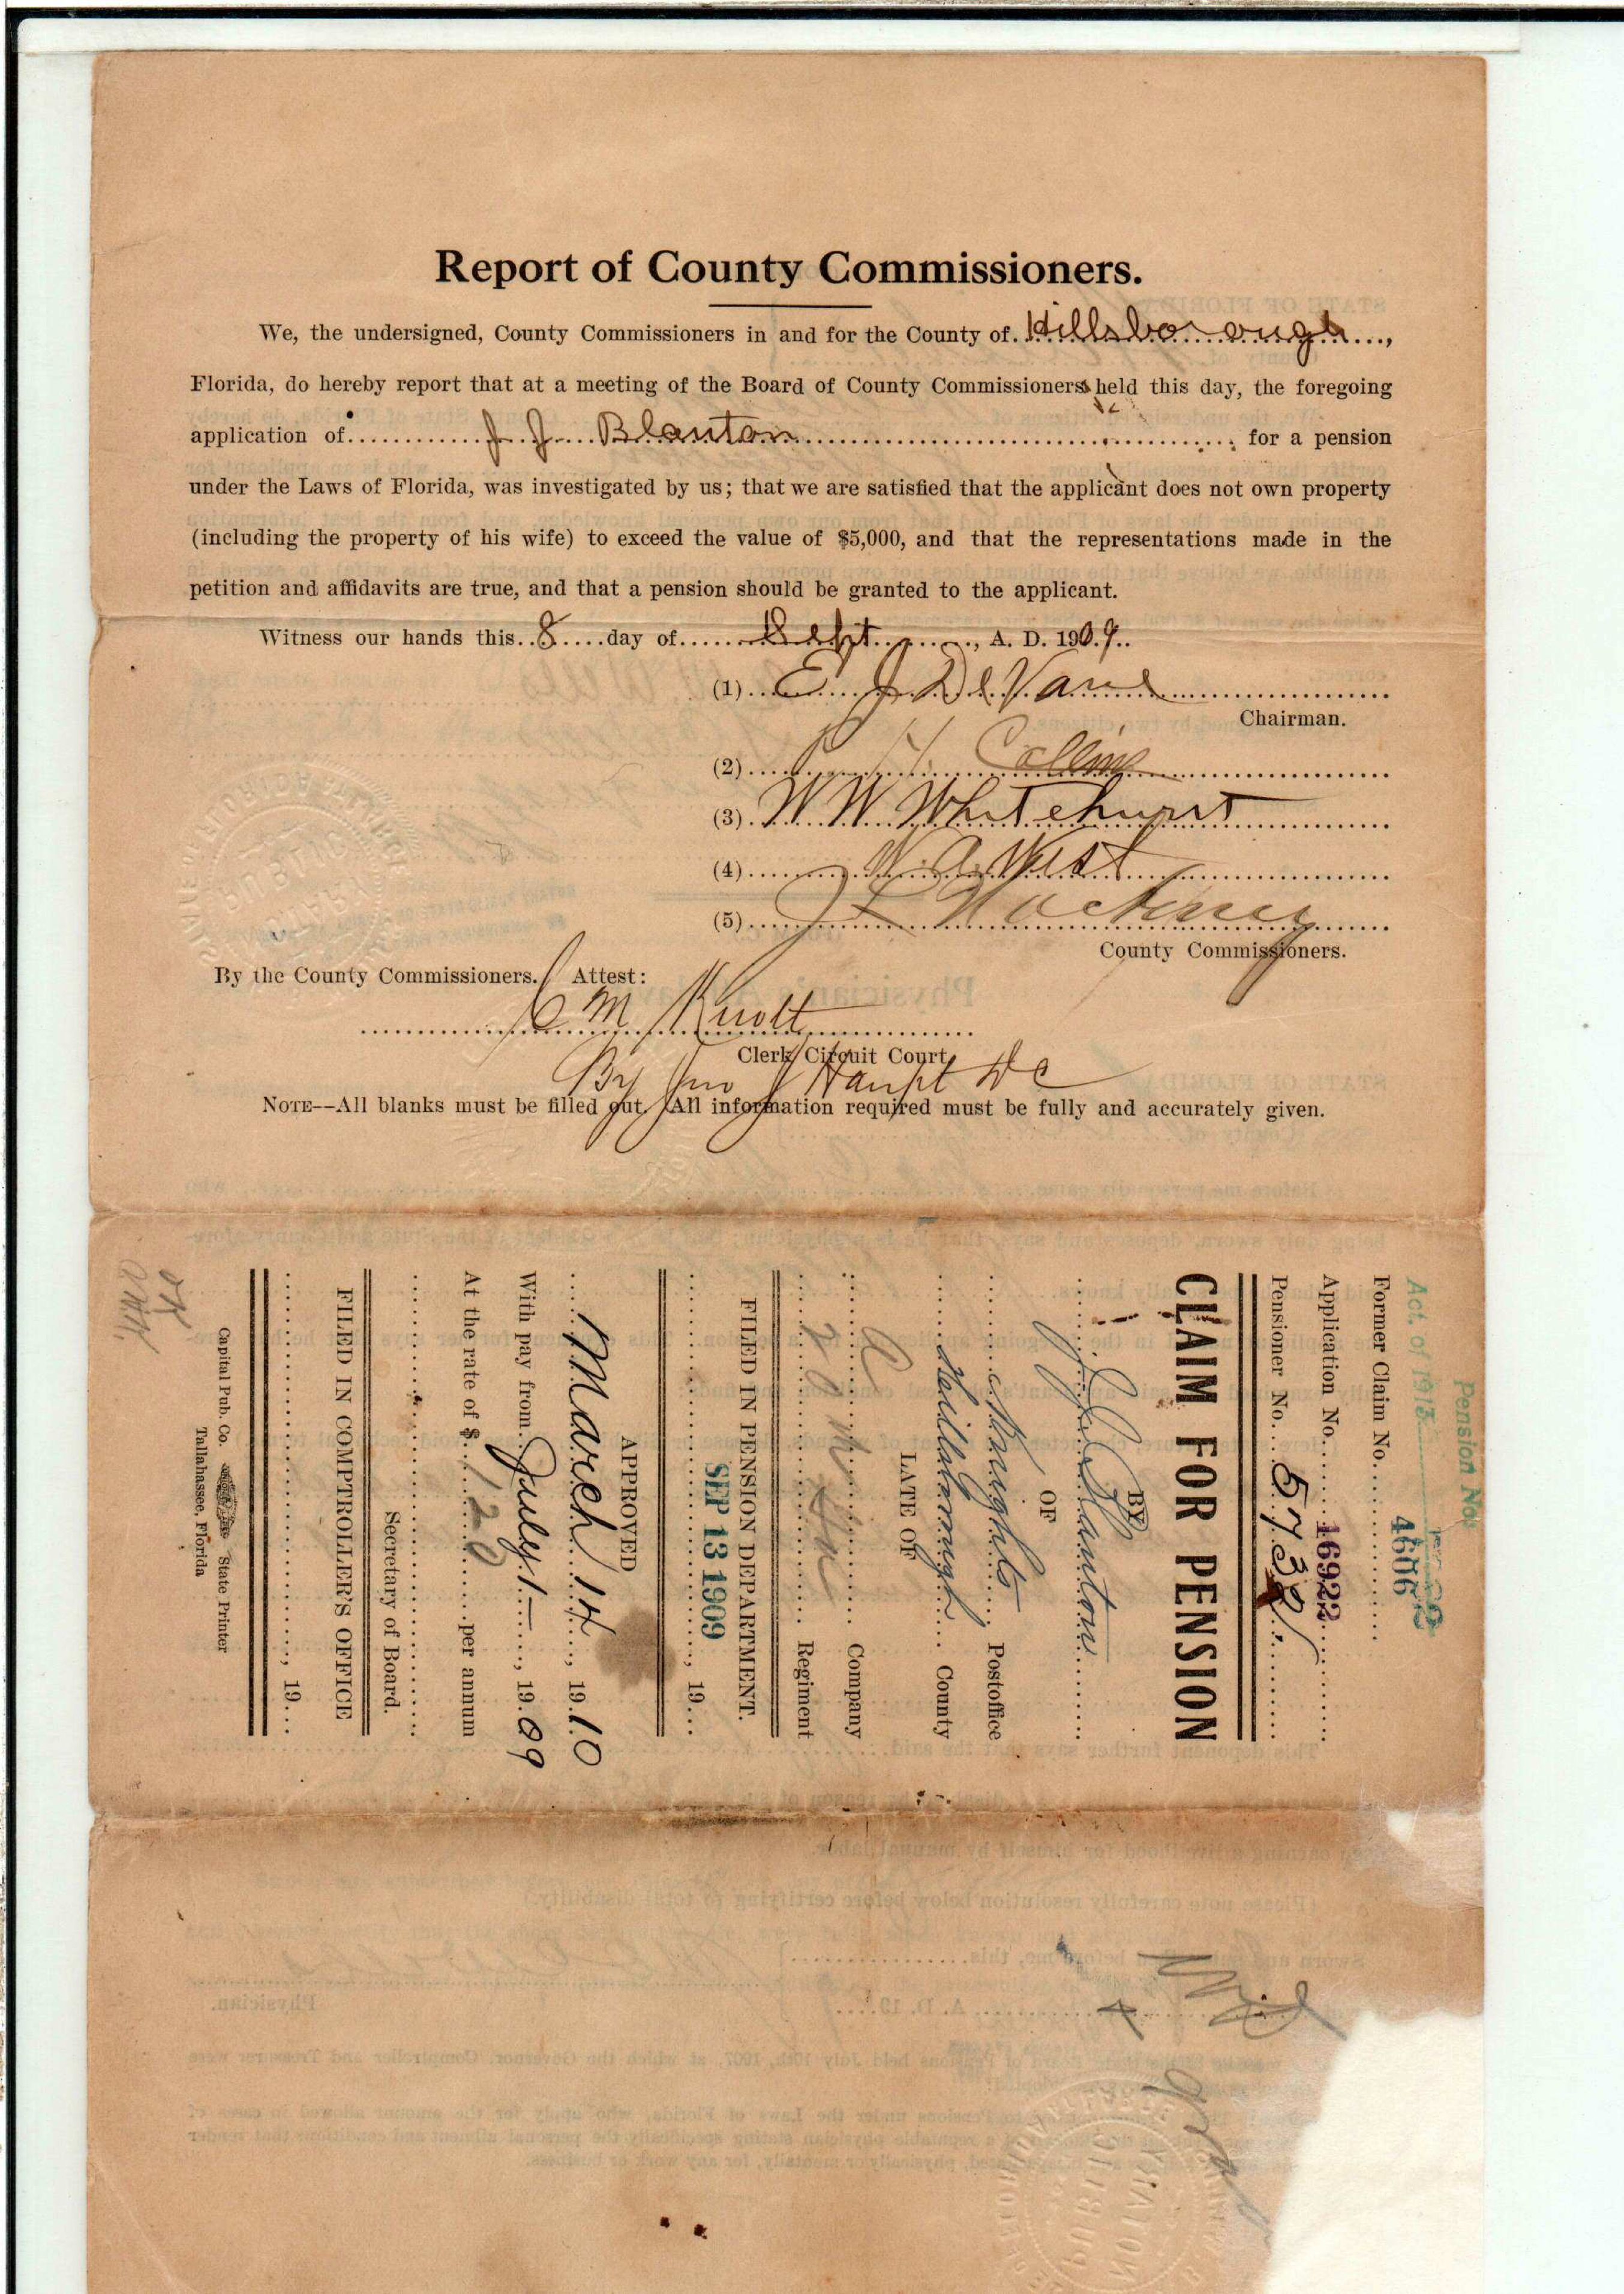 Report of County Commissioners.
We, the undersigned, County Commissioners in and for the County of. Hillsborough....,
Florida, do hereby report that at a meeting of the Board of County Commissioners held this day, the foregoing
application of............J. J. Blanton.............................. for a pension
under the Laws of Florida, was investigated by us; that we are satisfied that the applicant does not own property
(including the property of his wife) to exceed the value of $5,000, and that the representations made in the
petition and affidavits are true, and that a pension should be granted to the applicant.
Witness our hands this..8....day of......Sept........, A. D. 1909..
(1)..E J DeVane
Chairman.
(2).... H. Collins
(3). W W Whitehurst
(4)....W. A. West
(5)....J L
County Commissioners.
By the County Commissioners. Attest:
C M Knott
Clerk Circuit Court.
By Jno J Haupt DC
NOTE--All blanks must be filled out. All information required must be fully and accurately given.
Pension No.
Act of 1913
4606
Former Claim No.
Application No. 16922
Pensioner No. 5732
CLAIM FOR PENSION
BY
J. J. Blanton
OF
Knights Postoffice
Hillsborough County
LATE OF
Company
Regiment
FILED IN PENSION DEPARTMENT.
SEP 13 1909, 19...
APPROVED
March 14, 1910
With pay from July 1-, 1909
At the rate of $ 120 per annum
Secretary of Board.
FILED IN COMPTROLLER'S OFFICE
, 19...
Capital Pub. Co. State Printer
Tallahassee, Florida
OK